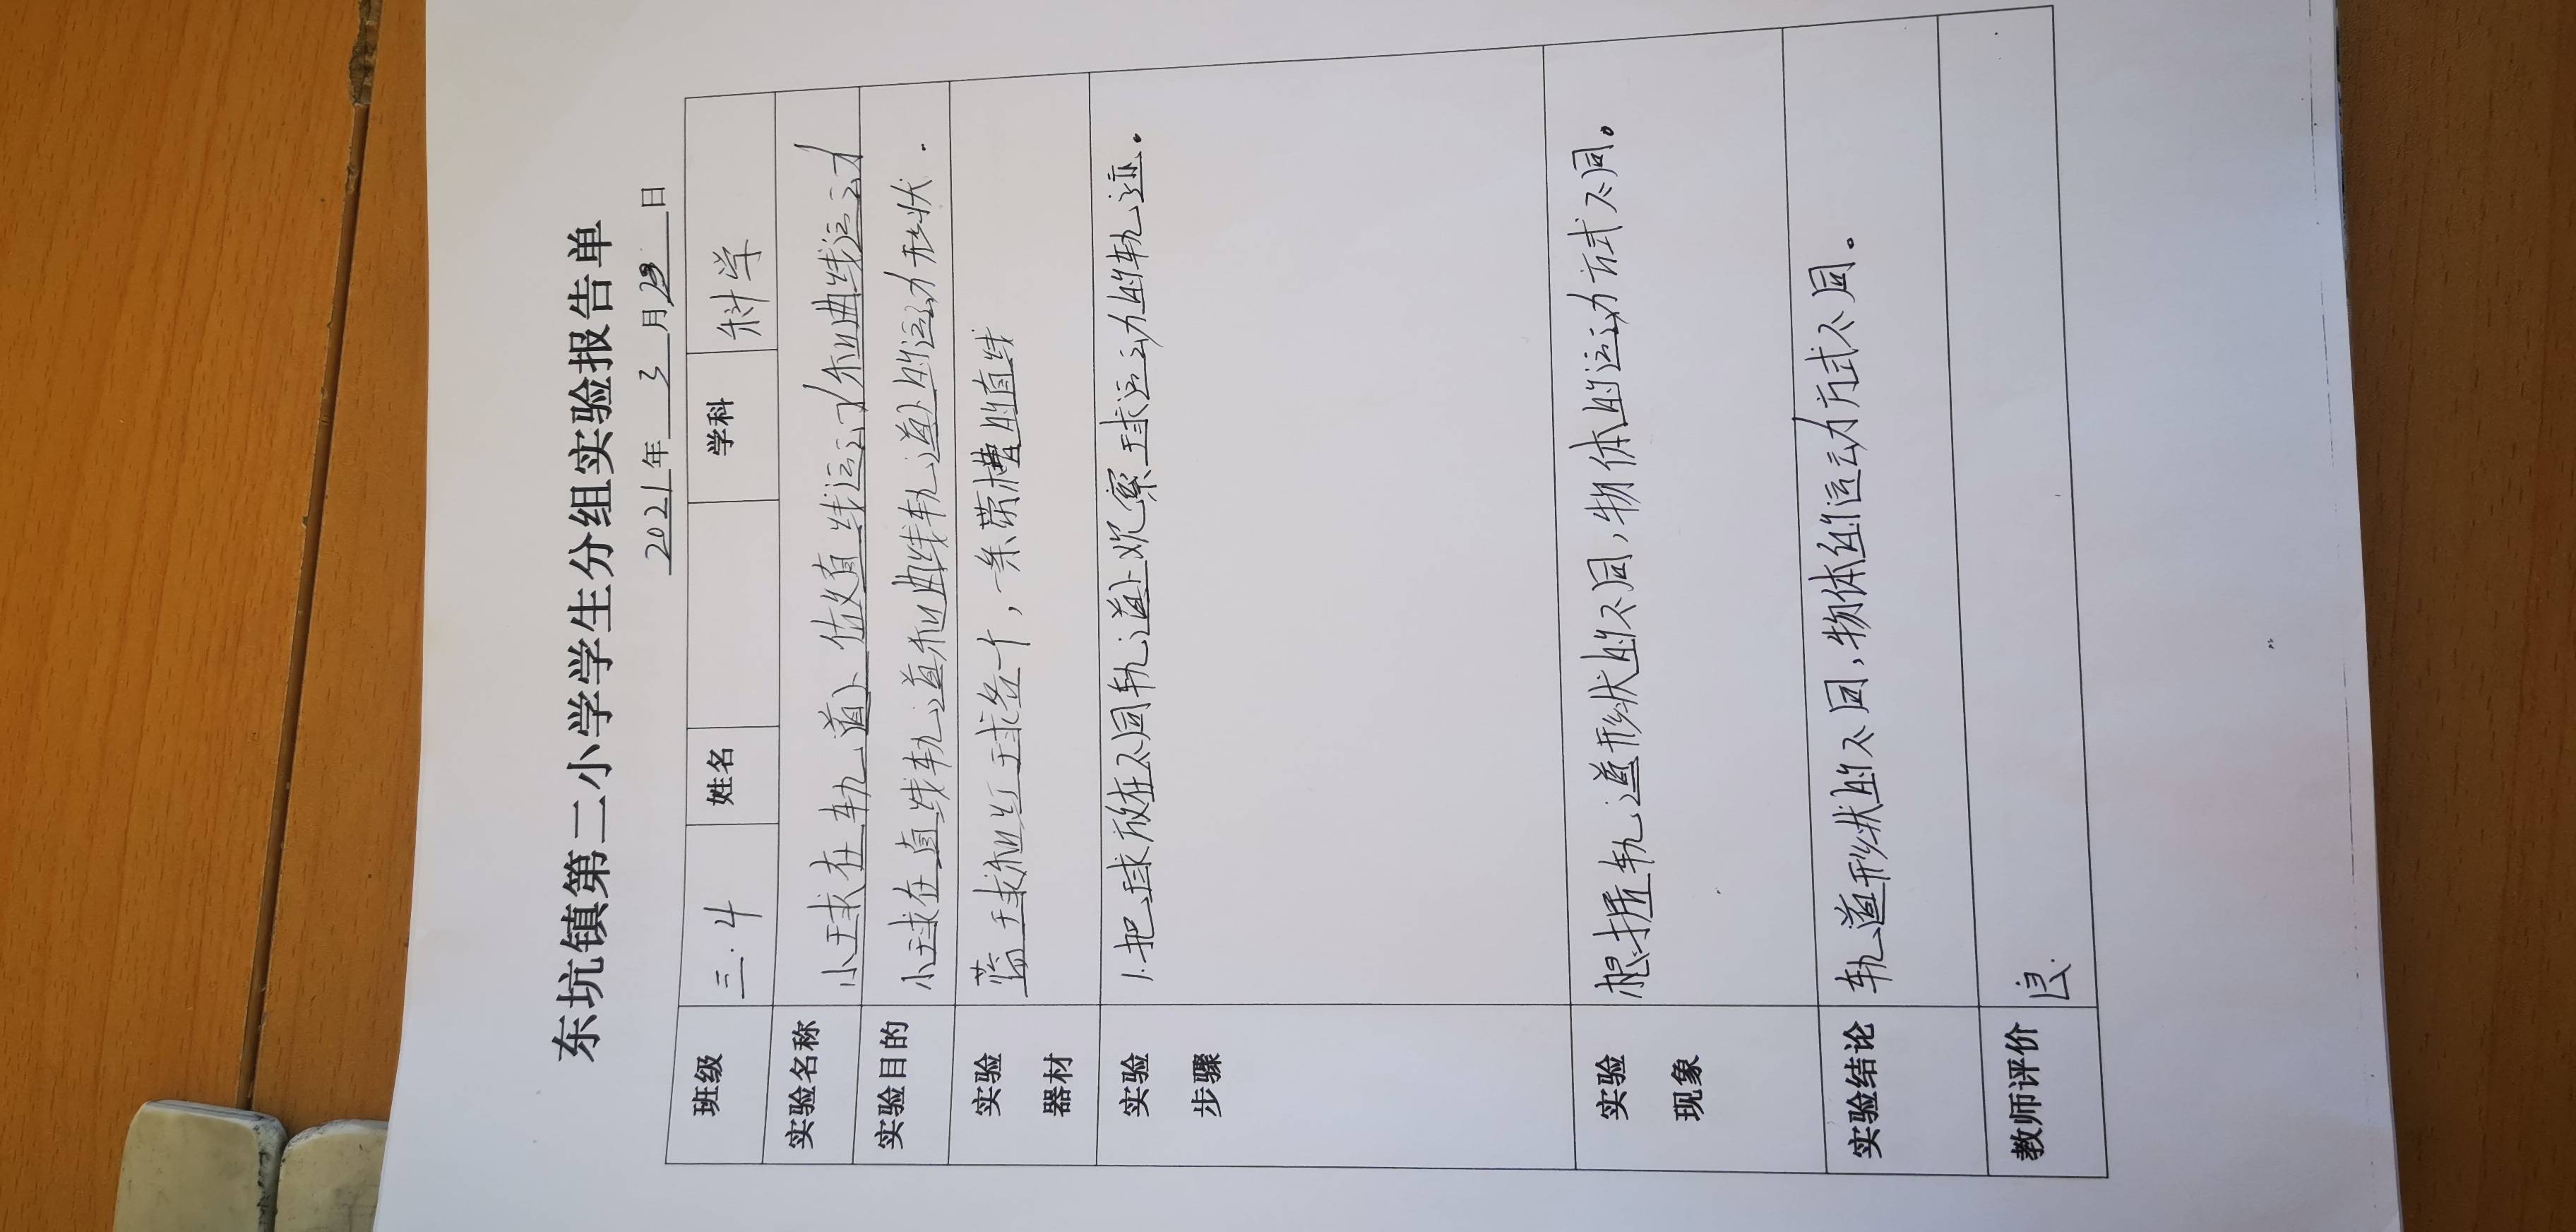 东坑镇第二小学学生分组实验报告单
2021年 3 月 日
班级 三.4 姓名 学科 科学
实验名称 小球在轨道上做直线运动和曲线运动
实验目的 小球在直线轨道和曲线轨道上的运动形状.
实验器材 蓝球和红球各一个,一条带槽的直线
实验步骤 1.把球放在不同轨道上观察球运动的轨迹。
实验现象 根据轨道形状的不同,物体的运动方式不同。
实验结论 轨道形状的不同,物体的运动方式不同。
教师评价 良.